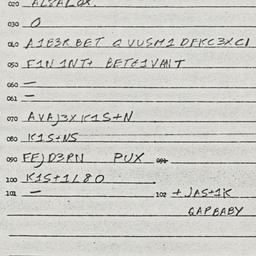 020 ALYALQX.
030 O
040 A1E3R BET Q VUSM1 DFKC3XC1
050 F1N 1NT+ BET61VANT
060 —
061 —
070 AVAJ3X K1S+N
080 K1S+NS
090 FEJD3RN PUX 091 —
100 K1S+1L80
101 — 102 +JAS+1K
QAPBABY